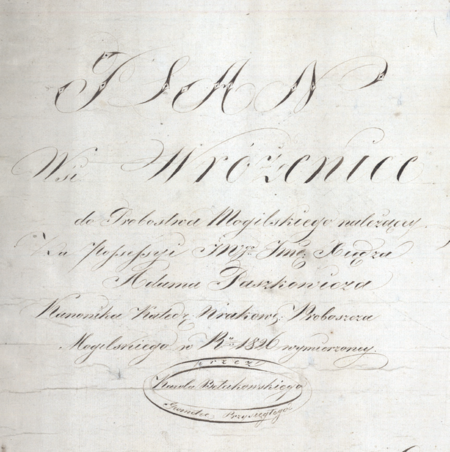 PLAN
Wsi Wróżenice
do Probostwa Mogilskiego należący
Za Possessyi Jmć Xiędza
Adama Paszkowicza
Kanonika Katedr Krakow: Proboszcza
Mogilskiego w R: 1826 wymierzony
przez
Karola Bełchowskiego
Przysięgłego